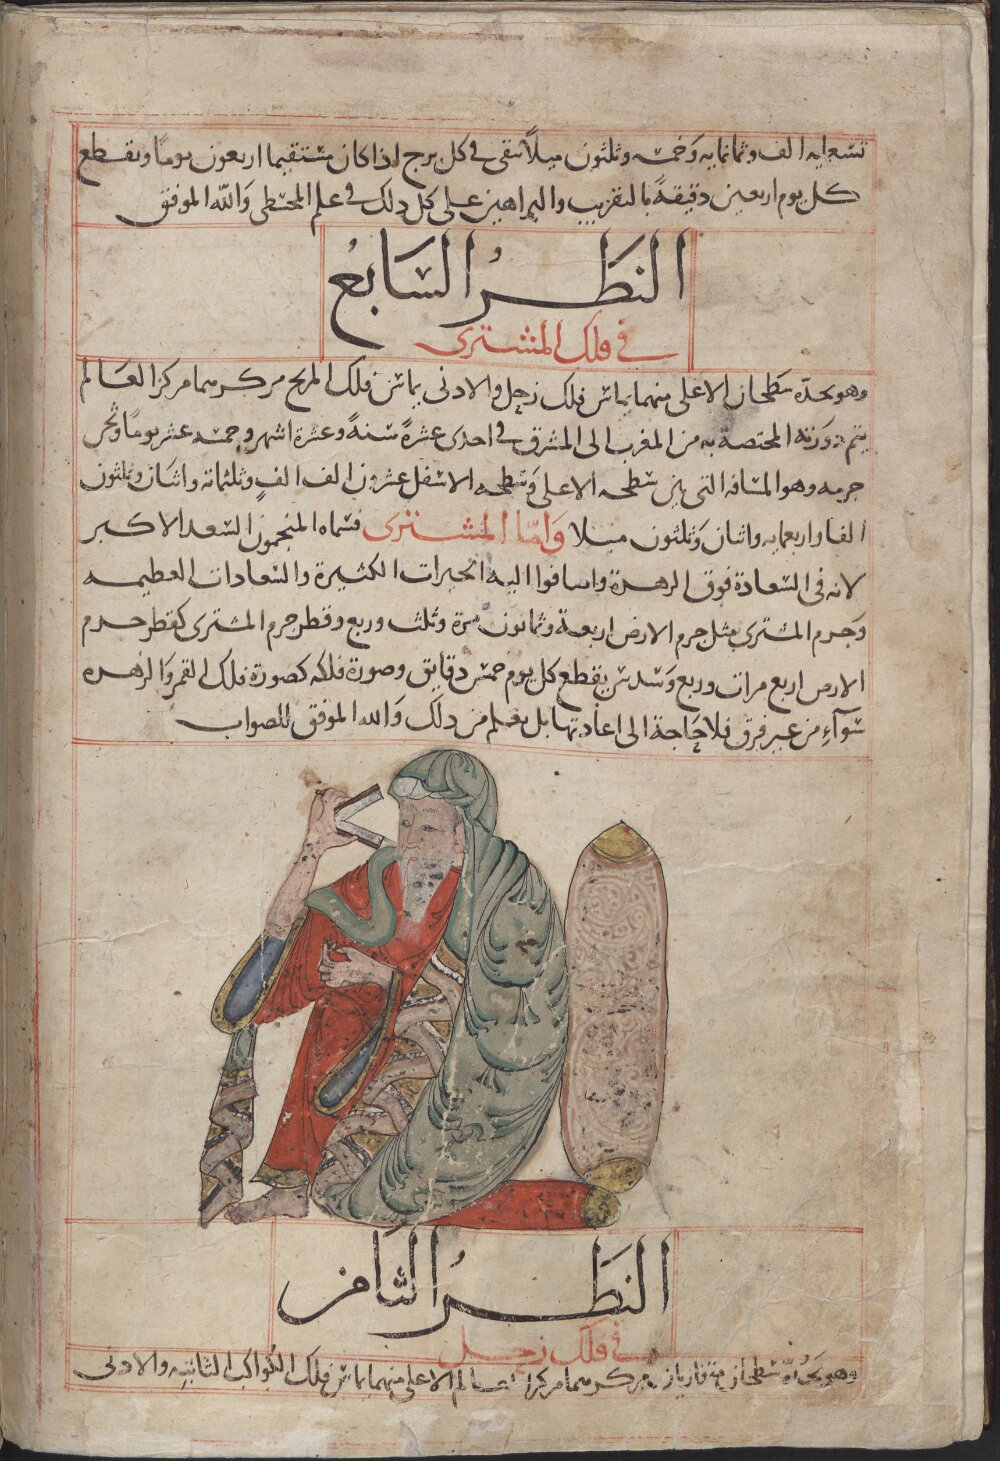 تسعمايه الف وثمانمايه وخمسه وثلثون ميلاً تبقى في كل برج اذا كان مستقيما اربعون يوماً وتقطع
كل يوم اربعين دقيقةً بالتقريب والبراهين على كل ذلك في علم المجسطي والله الموفق
النظر السابع
في فلك المشترى
وهو يحدّه سطحان الاعلى منهما يماس فلك زحل والادنى يماس فلك المريخ مركزهما مركز العالم
يتم دورته المختصة به من المغرب الى المشرق في احدى عشرة سنةً وعشرة اشهر وخمسه عشر يوماً وثخن
جرمه وهو المسافه التى بين سطحه الاعلى وسطحه الاسفل عشرون الف الفٍ وثلثمائه واثنان وثلثون
الفا واربعمايه واثنان وثلثون ميلا وامّا المشترى فسماه المنجمون السعد الاكبر
لانه فى السعادة فوق الزهرة واضافوا اليه الخيرات الكثيرة والسعادات العظيمه
وجرم المشترى مثل جرم الارض اربعة وثمانون مرة وثلث وربع وقطر جرم المشترى كقطر جرم
الارض اربع مرات وربع وسدس يقطع كل يوم خمس دقايق وصورة فلكه كصورة فلك القمر والزهره
سوآء من غير فرق فلا حاجة الى اعادتها بل يعلم من ذلك والله الموفق للصواب
النظر الثامن
في فلك زحل
وهو يحدّه سطحان متوازيان مركزهما مركز العالم الاعلى منهما يماس فلك الكواكب الثابته والادنى